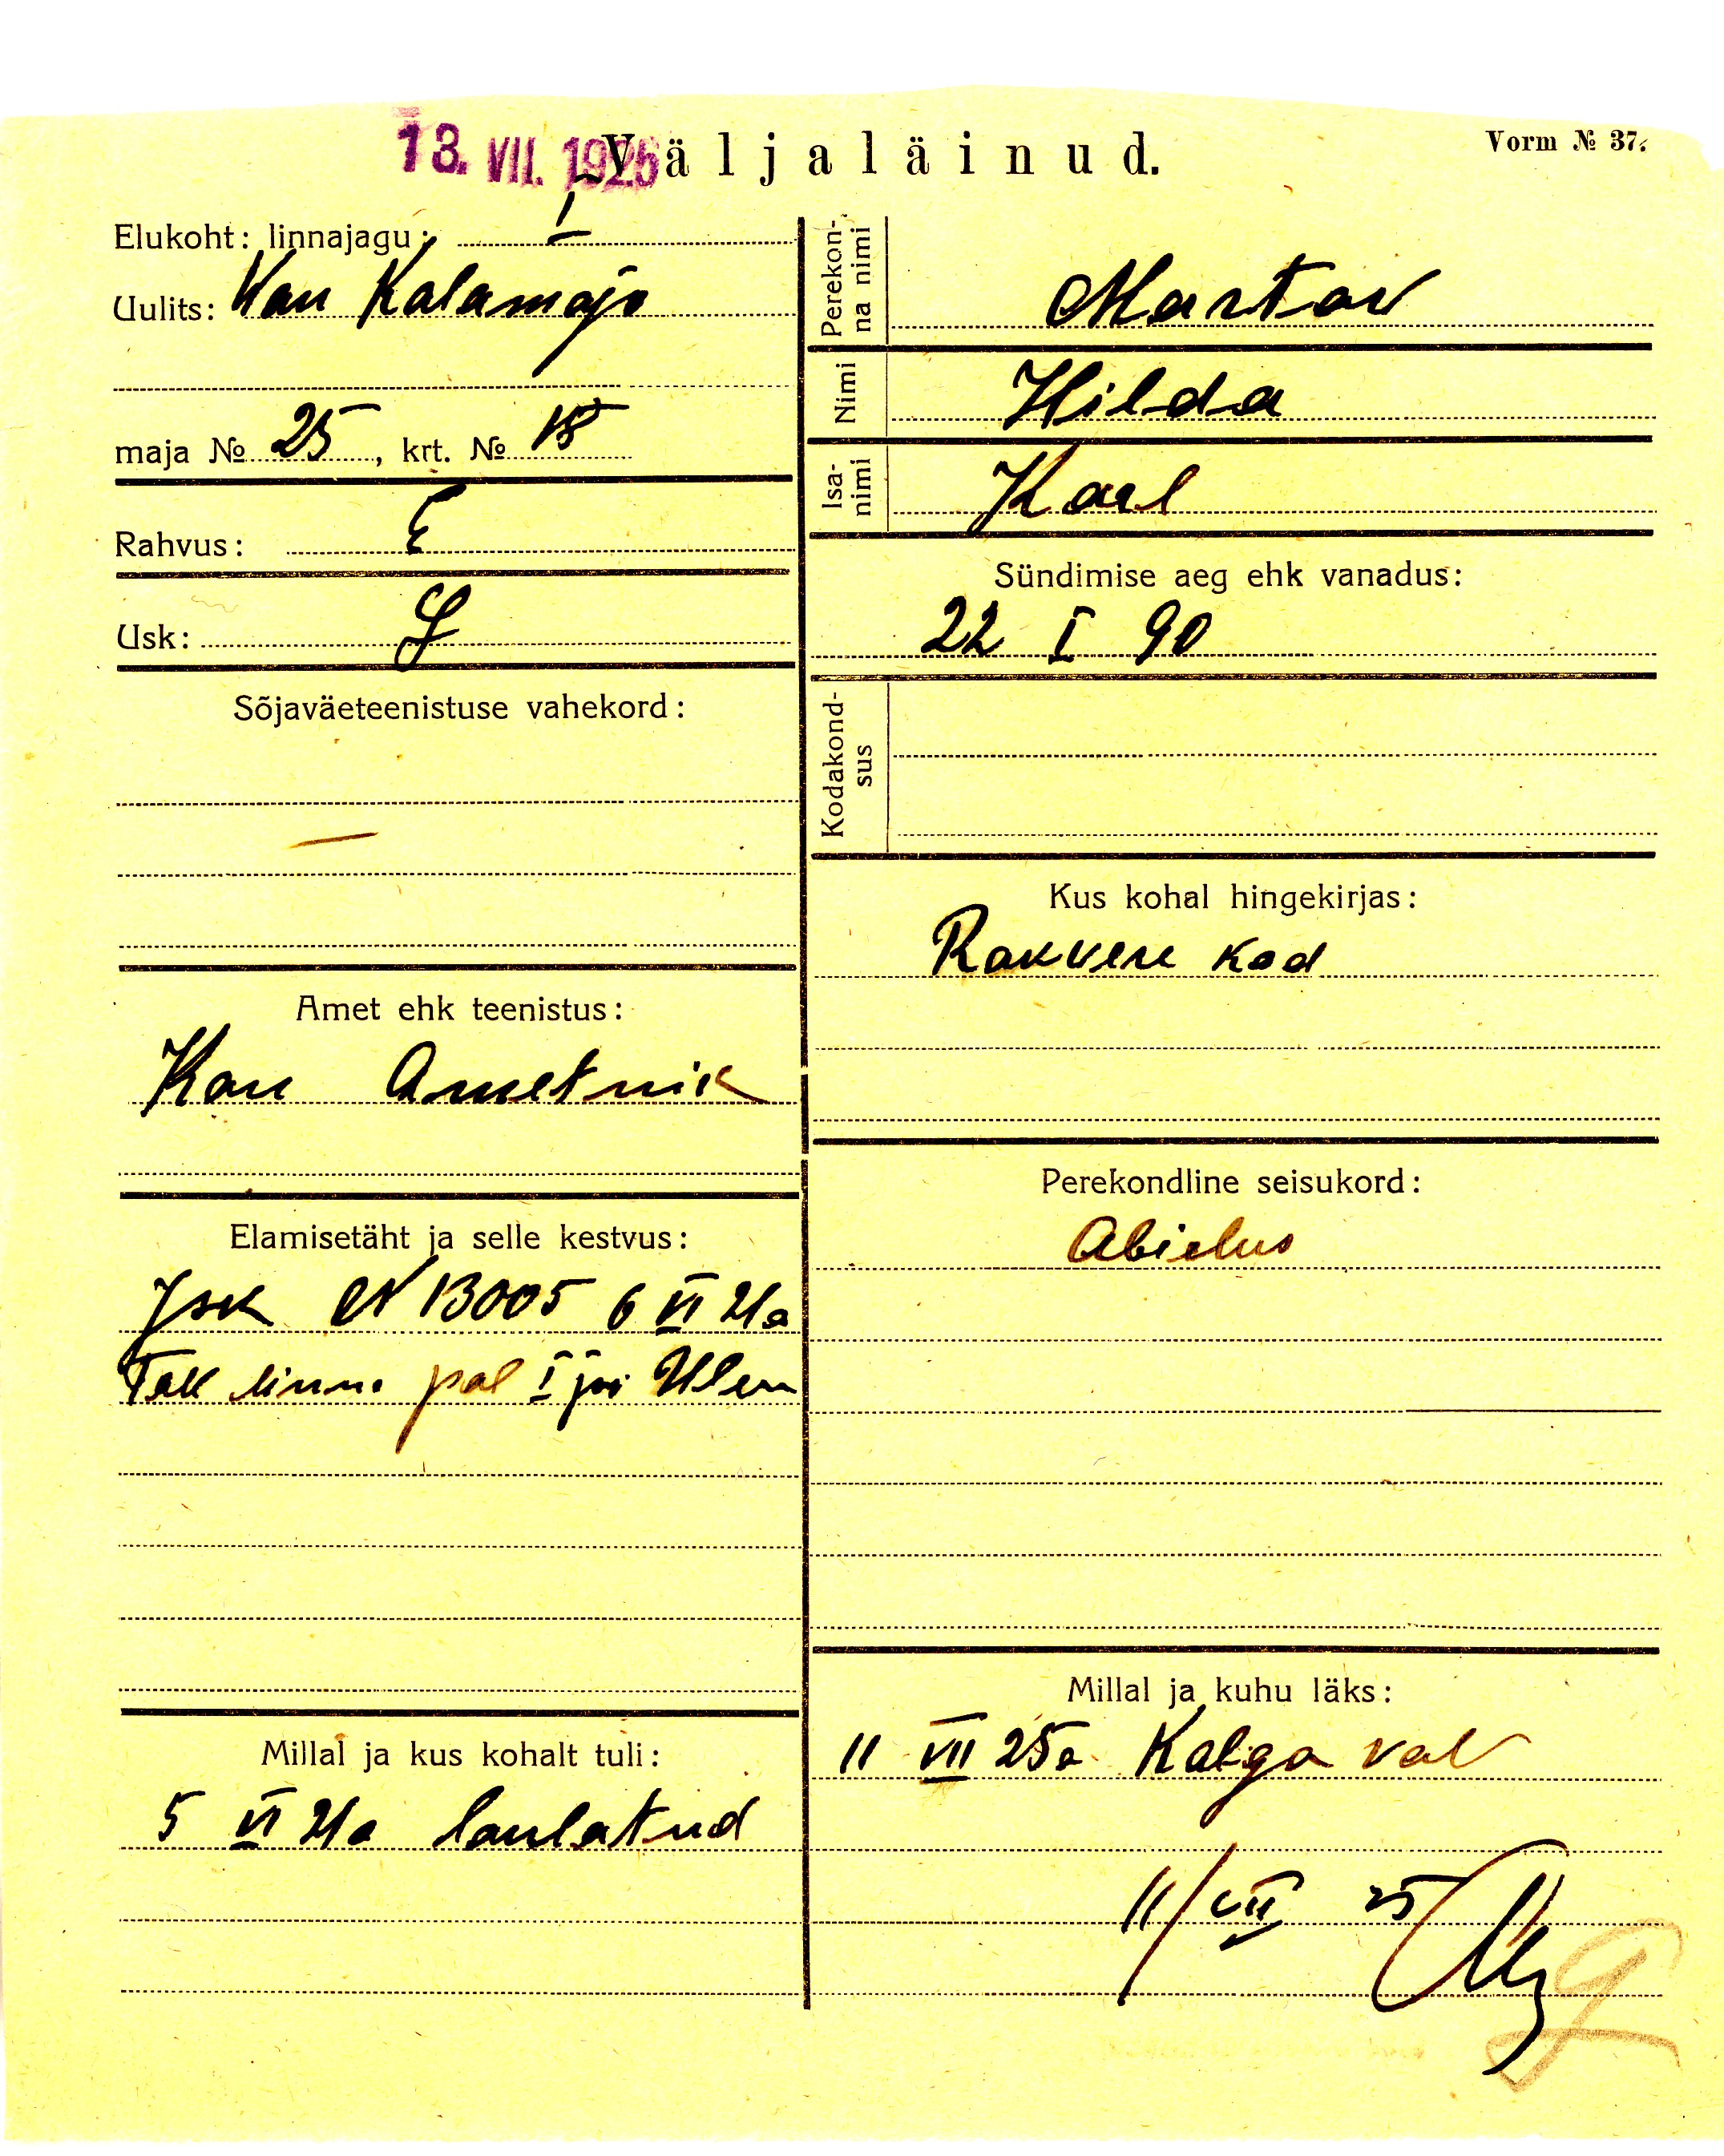 13. VII. 1925
Väljaläinud.
Vorm № 37.
Elukoht: linnajagu: I
Uulits: Wan Kalamaja
maja № 25, krt. № 18
Rahvus: E
Usk: L
Sõjaväeteenistuse vahekord:
—
Amet ehk teenistus:
Kau Ametnik
Elamisetäht ja selle kestvus:
Isk N 13005 6 VI 21a
Tall linna pol I jsk
Millal ja kus kohalt tuli:
5 VI 21a laulatud
Perekonna nimi Martov
Nimi Hilda
Isanimi Karl
Sündimise aeg ehk vanadus:
22 I 90
Kodakondsus
Kus kohal hingekirjas:
Rakvere kod
Perekondline seisukord:
Abielus
Millal ja kuhu läks:
11 VII 25a Kolga val
11/VII 25